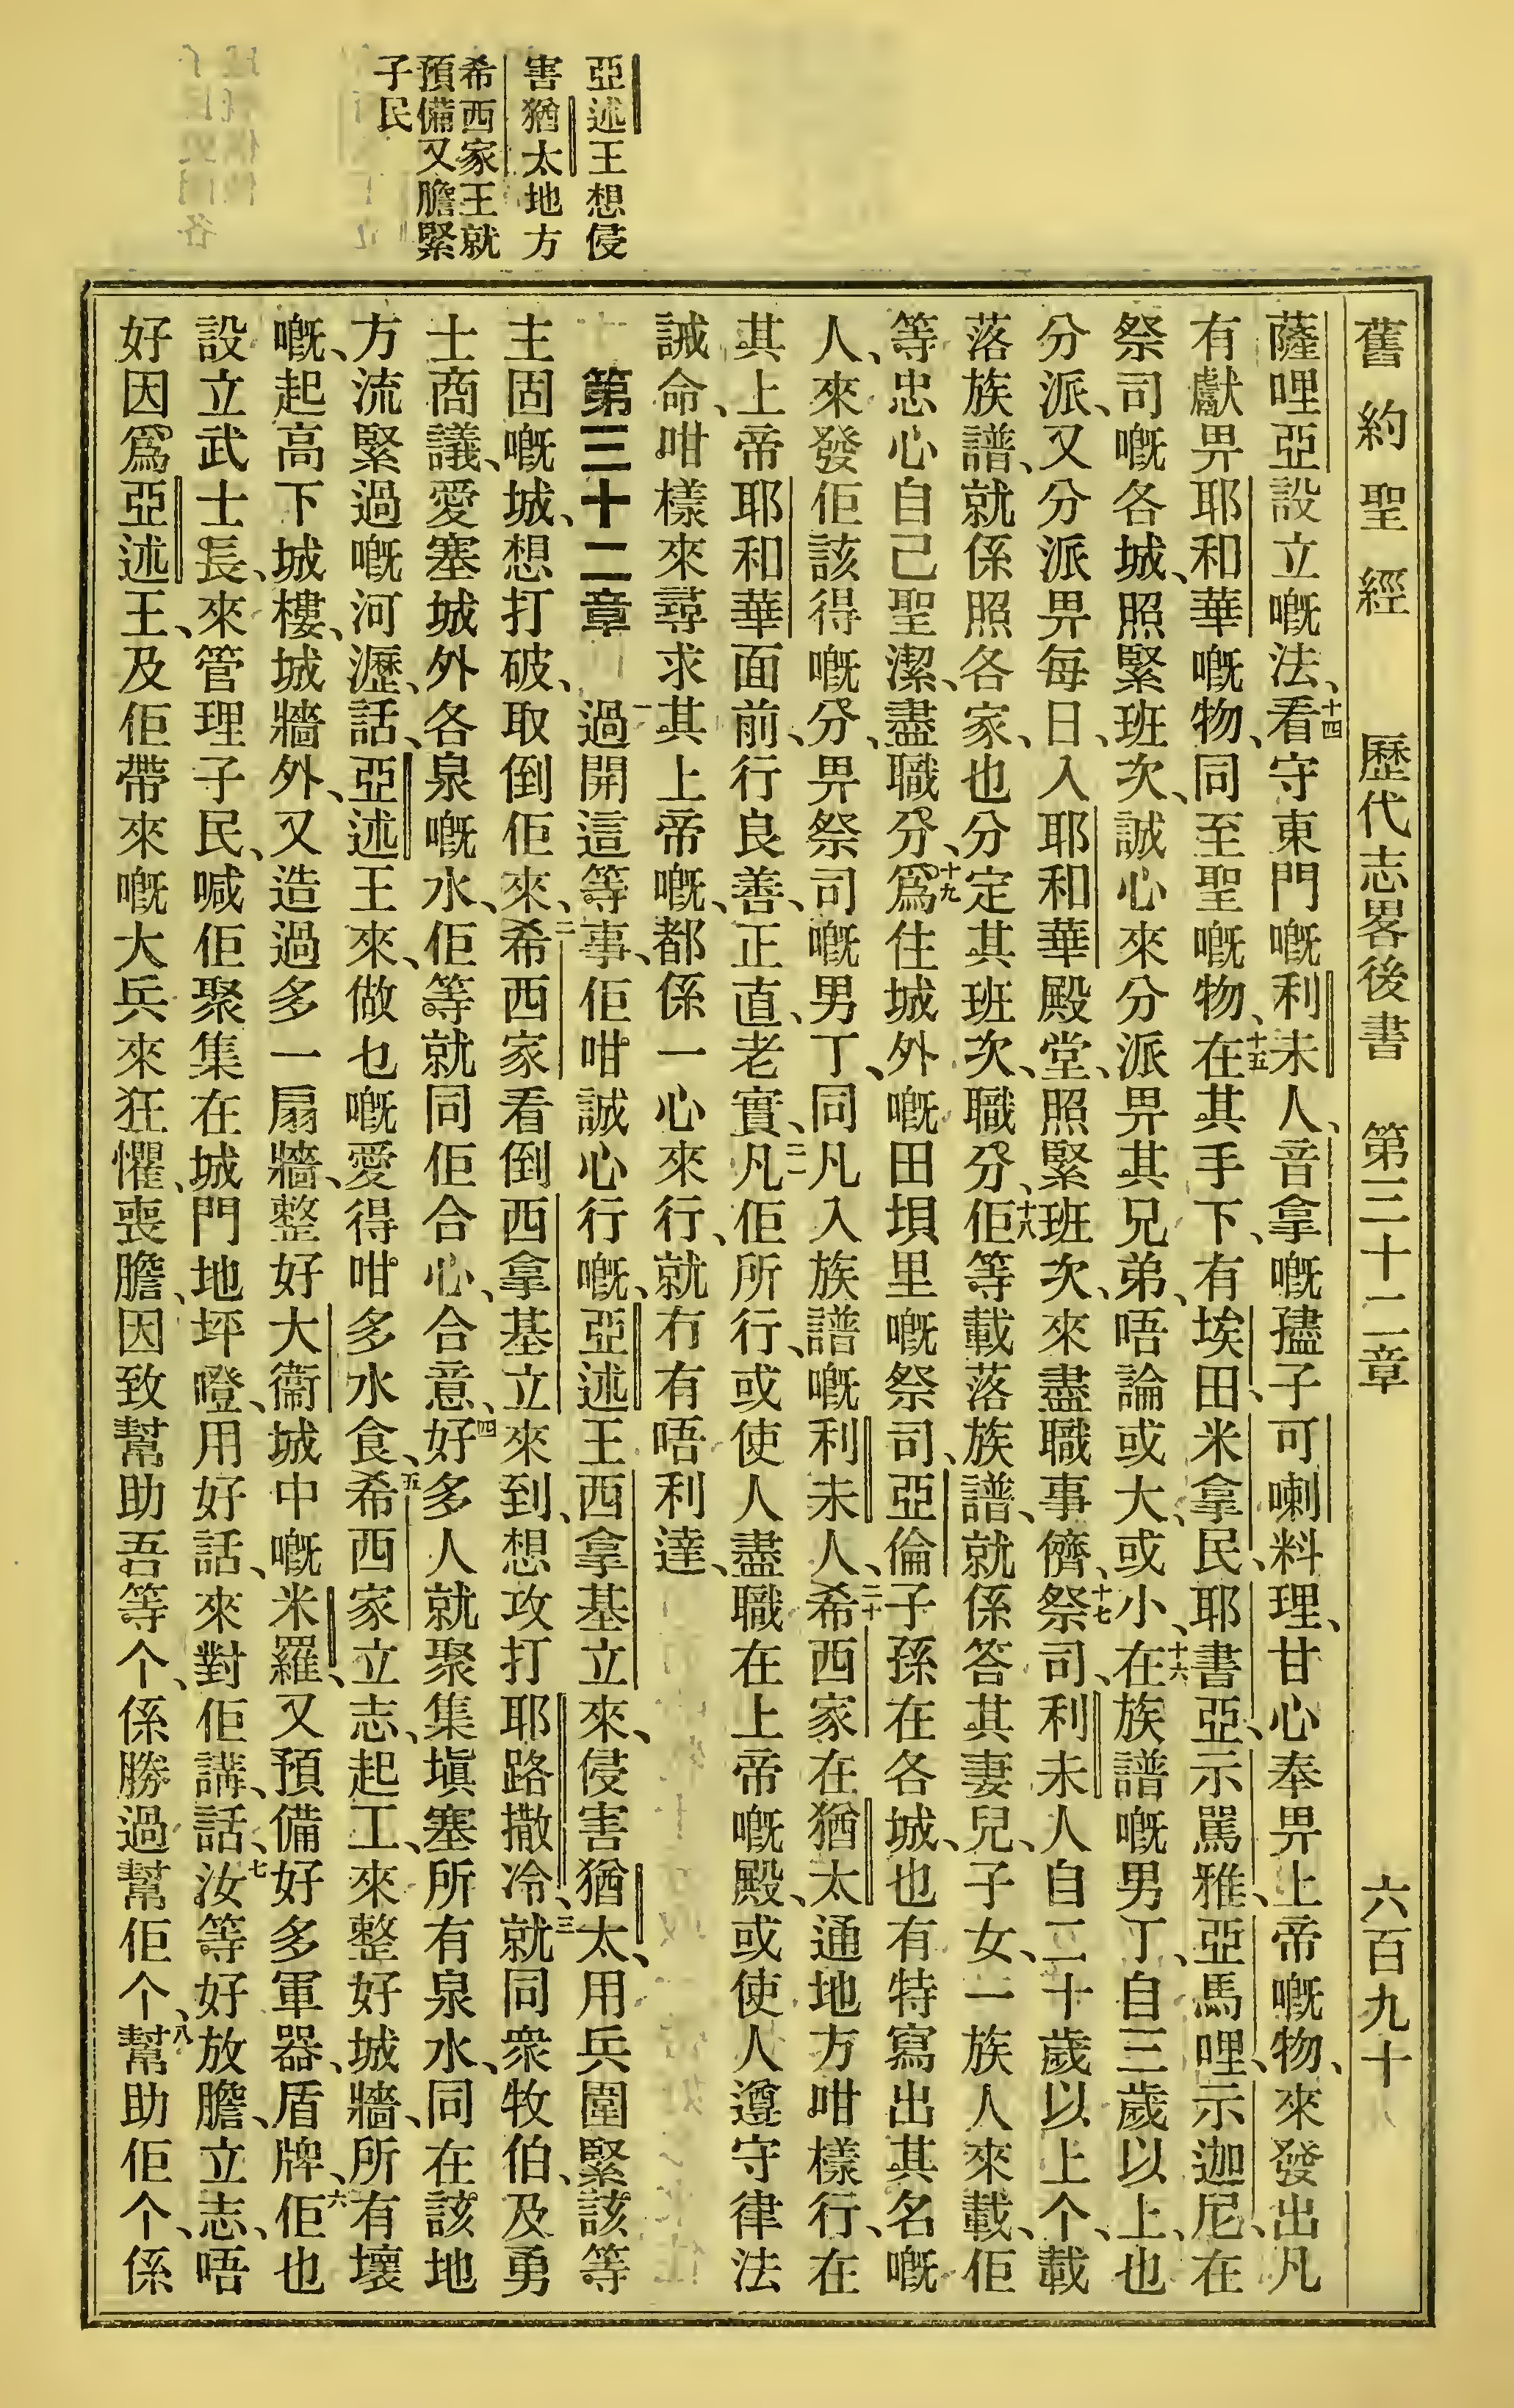 舊約聖經　歷代志畧後書　第三十二章　六百九十八
亞述王想侵
害猶太地方
希西家王就
預備又膽緊
子民
薩哩亞設立嘅法、十四看守東門嘅利未人、音拿嘅孻子可喇料理、甘心奉畀上帝嘅物、來發出凡
有獻畀耶和華嘅物、同至聖嘅物、十五在其手下、有埃田、米拿民、耶書亞、示駡雅、亞馬哩、示迦尼、在
祭司嘅各城、照緊班次、誠心來分派畀其兄弟、唔論或大、或小、十六在族譜嘅男丁、自三歲以上、也
分派、又分派畀每日、入耶和華殿堂、照緊班次、來盡職事儕、十七祭司、利未人自二十歲以上个、載
落族譜、就係照各家、也分定其班次、職分、十八佢等載落族譜、就係答其妻兒、子女、一族人來載、佢
等忠心自己聖潔、盡職分、十九爲住城外嘅田埧里嘅祭司、亞倫子孫在各城、也有特寫出其名嘅
人、來發佢該得嘅分、畀祭司嘅男丁、同凡入族譜嘅利未人、二十希西家在猶太通地方咁樣行、在
其上帝耶和華面前、行良善、正直、老實、二一凡佢所行、或使人盡職在上帝嘅殿、或使人遵守律法
誡命、咁樣來尋求其上帝嘅、都係一心來行、就冇有唔利達、
第三十二章　一過開這等事、佢咁誠心行嘅、亞述王西拿基立來、侵害猶太、用兵圍緊該等
主固嘅城、想打破、取倒佢來、二希西家看倒西拿基立來到、想攻打耶路撒冷、三就同衆牧伯、及勇
士商議、愛塞城外各泉嘅水、佢等就同佢合心、合意、四好多人就聚集塡塞所有泉水、同在該地
方流緊過嘅河瀝、話、亞述王來、做乜嘅愛得咁多水食、五希西家立志、起工、來整好城牆、所有壞
嘅、起高下城樓、城牆外、又造過多一扇牆、整好大衞城中嘅米羅、又預備好多軍器、盾牌、六佢也
設立武士長、來管理子民、喊佢聚集在城門地坪嶝、用好話、來對佢講、話、七汝等好放膽、立志、唔
好因爲亞述王、及佢帶來嘅大兵來狂懼、喪膽、因致幫助吾等个、係勝過幫佢个、八幫助佢个、係